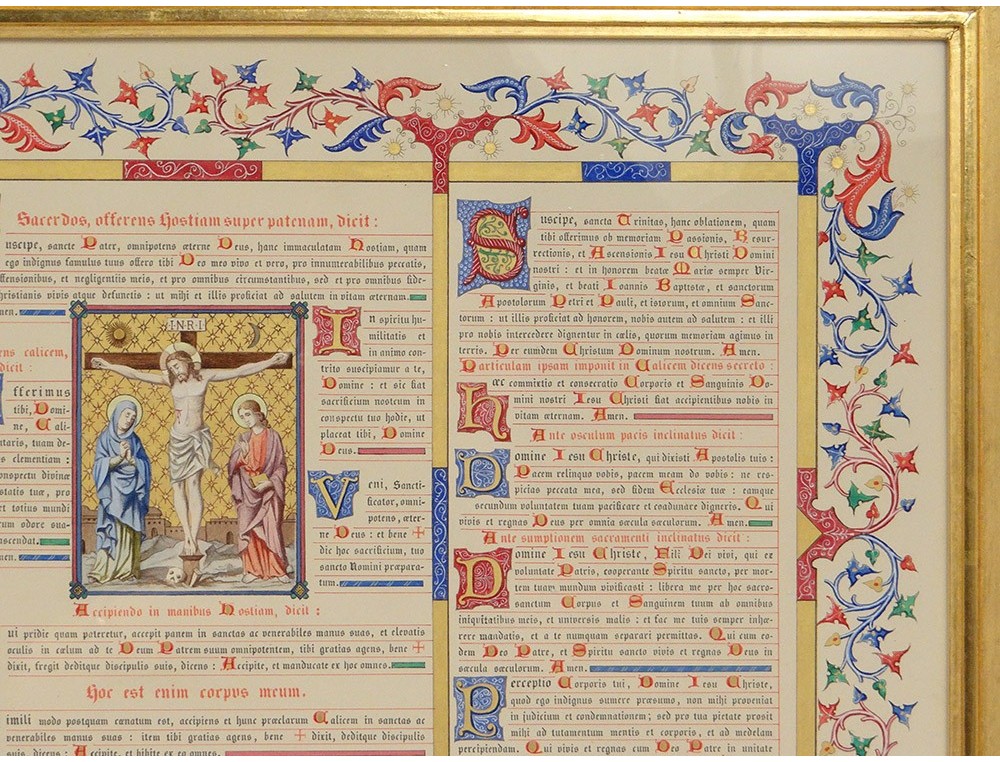 Sacerdos, offerens Hostiam super patenam, dicit :
uscipe, sancte Pater, omnipotens æterne Deus, hanc immaculatam Hostiam, quam
ego indignus famulus tuus offero tibi Deo meo vivo et vero, pro innumerabilibus peccatis,
ffensionibus, et negligentiis meis, et pro omnibus circumstantibus, sed et pro omnibus fide-
hristianis vivis atque defunctis : ut mihi et illis proficiat ad salutem in vitam æternam
men.
ens calicem,
dicit :
fferimus
tibi, Domi-
ne, Cali-
utaris, tuam de-
s clementiam :
onspectu divinæ
statis tuæ, pro
et totius mundi
um odore sua-
ascendat.
men.
INRI
In spiritu hu-
militatis et
in animo con-
trito suscipiamur a te,
Domine : et sic fiat
sacrificium nostrum in
conspectu tuo hodie, ut
placeat tibi, Domine
Deus.
Veni, Sancti-
ficator, omni-
potens, æter-
ne Deus : et bene +
dic hoc sacrificium, tuo
sancto Nomini præpara-
tum.
Accipiendo in manibus Hostiam, dicit :
ui pridie quam pateretur, accepit panem in sanctas ac venerabiles manus suas, et elevatis
oculis in cælum ad te Deum Patrem suum omnipotentem, tibi gratias agens, bene +
dixit, fregit deditque discipulis suis, dicens : Accipite, et manducate ex hoc omnes.
Hoc est enim corpvs mevm.
imili modo postquam cœnatum est, accipiens et hunc præclarum Calicem in sanctas ac
venerabiles manus suas : item tibi gratias agens, bene + dixit, deditque discipulis
suis, dicens : Accipite, et bibite ex eo omnes.
Suscipe, sancta Trinitas, hanc oblationem, quam
tibi offerimus ob memoriam Passionis, Resur-
rectionis, et Ascensionis Iesu Christi Domini
nostri : et in honorem beatæ Mariæ semper Vir-
ginis, et beati Ioannis Baptistæ, et sanctorum
Apostolorum Petri et Pauli, et istorum, et omnium Sanc-
torum : ut illis proficiat ad honorem, nobis autem ad salutem : et illi
pro nobis intercedere dignentur in cœlis, quorum memoriam agimus in
terris. Per eumdem Christum Dominum nostrum. Amen.
Particulam ipsam imponit in Calicem dicens secreto :
Hæc commixtio et consecratio Corporis et Sanguinis Do-
mini nostri Iesu Christi fiat accipientibus nobis in
vitam æternam. Amen.
Ante osculum pacis inclinatus dicit :
Domine Iesu Christe, qui dixisti Apostolis tuis :
Pacem relinquo vobis, pacem meam do vobis : ne res-
picias peccata mea, sed fidem Ecclesiæ tuæ : eamque
secundum voluntatem tuam pacificare et coadunare digneris. Qui
vivis et regnas Deus per omnia sæcula sæculorum. Amen.
Ante sumptionem sacramenti inclinatus dicit :
Domine Iesu Christe, Fili Dei vivi, qui ex
voluntate Patris, cooperante Spiritu sancto, per mor-
tem tuam mundum vivificasti : libera me per hoc sacro-
sanctum Corpus et Sanguinem tuum ab omnibus
iniquitatibus meis, et universis malis : et fac me tuis semper inhæ-
rere mandatis, et a te numquam separari permittas. Qui cum eo-
dem Deo Patre, et Spiritu sancto vivis et regnas Deus in
sæcula sæculorum. Amen.
Perceptio Corporis tui, Domine Iesu Christe,
quod ego indignus sumere præsumo, non mihi proveniat
in judicium et condemnationem; sed pro tua pietate prosit
mihi ad tutamentum mentis et corporis, et ad medelam
percipiendam. Qui vivis et regnas cum Deo Patre in unitate